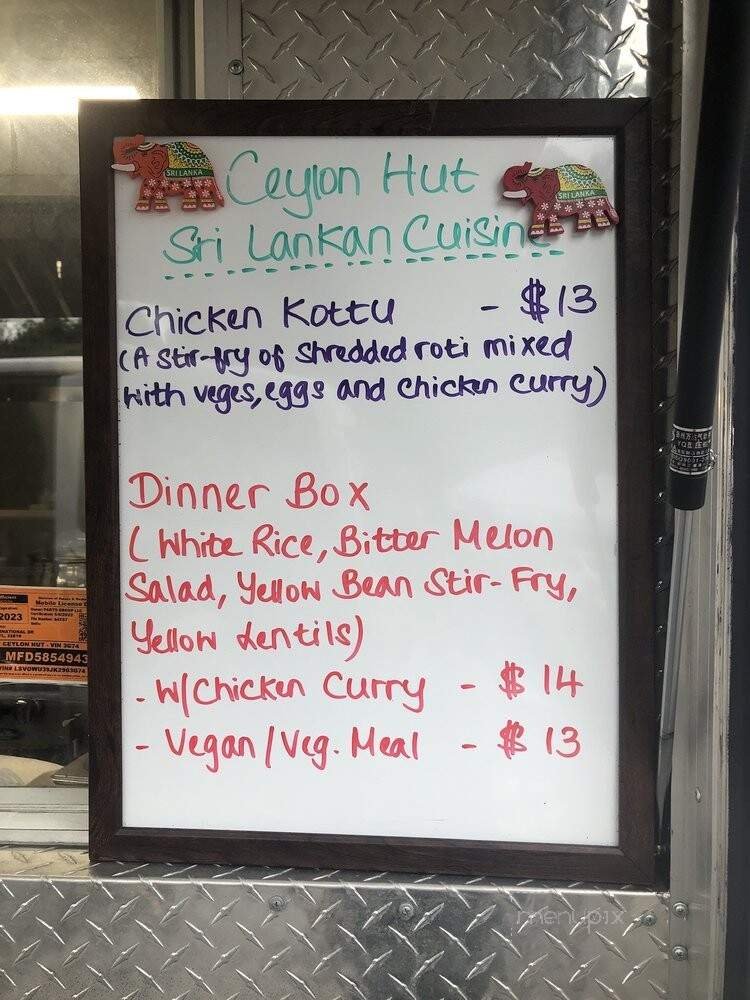 SRI LANKA
SRI LANKA
Ceylon Hut
Sri Lankan Cuisine
Chicken Kottu - $13
(A stir-fry of shredded roti mixed
with veges, eggs and chicken curry)
Dinner Box
(White Rice, Bitter Melon
Salad, Yellow Bean Stir-Fry,
Yellow Lentils)
- W/Chicken Curry - $ 14
- Vegan/Veg. Meal - $ 13
Mobile License
2023
CEYLON HUT - VIN 3G74
MFD5854943
menupix